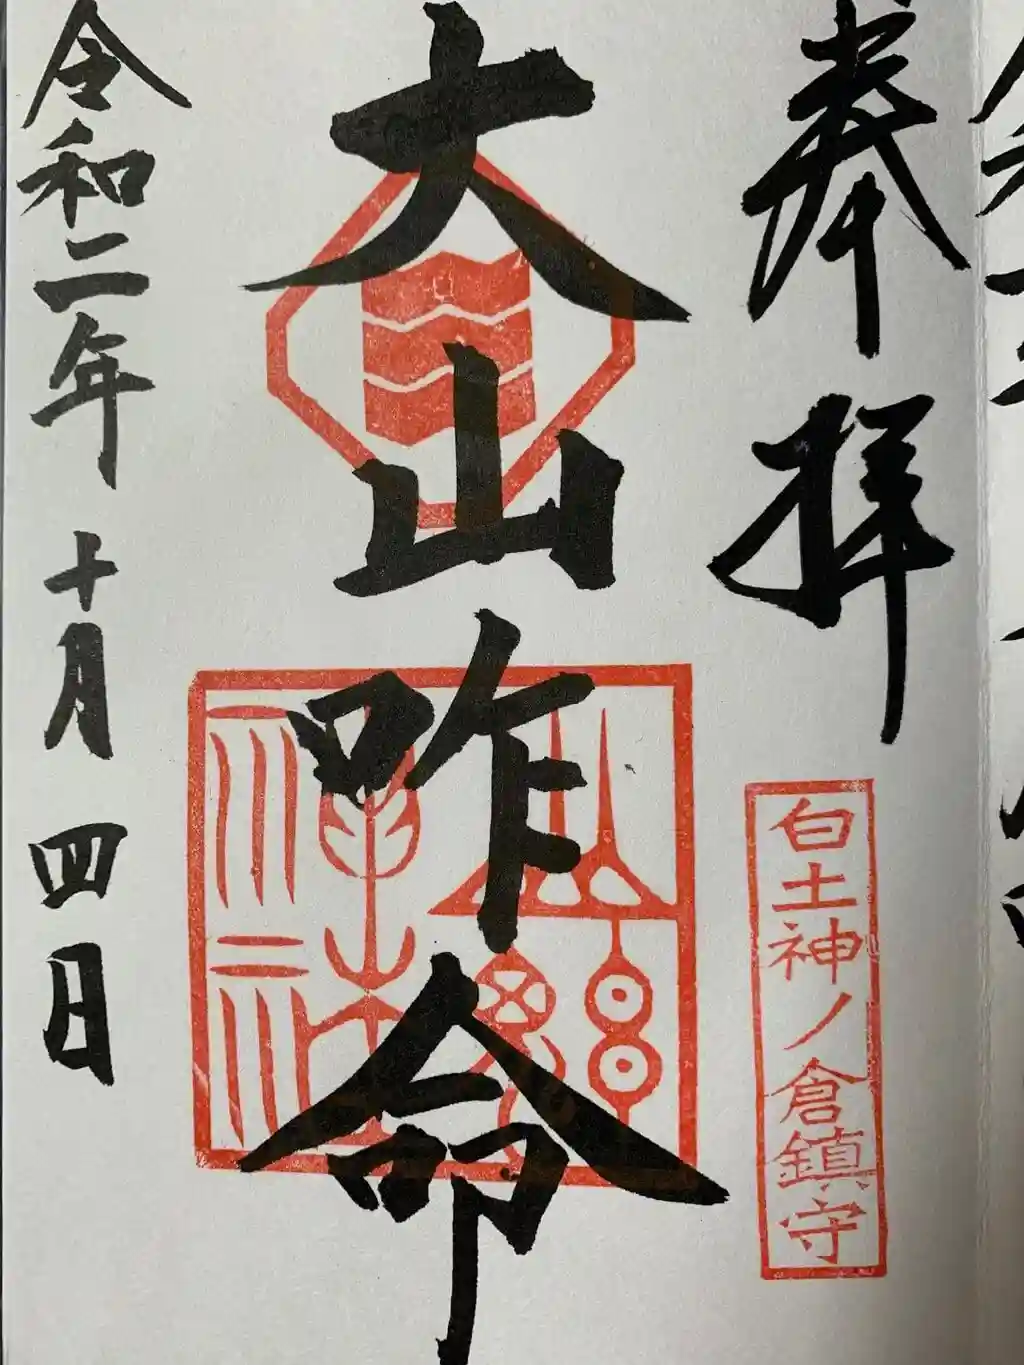 奉拝
白土神ノ倉鎮守
大山咋命
令和二年 十月 四日